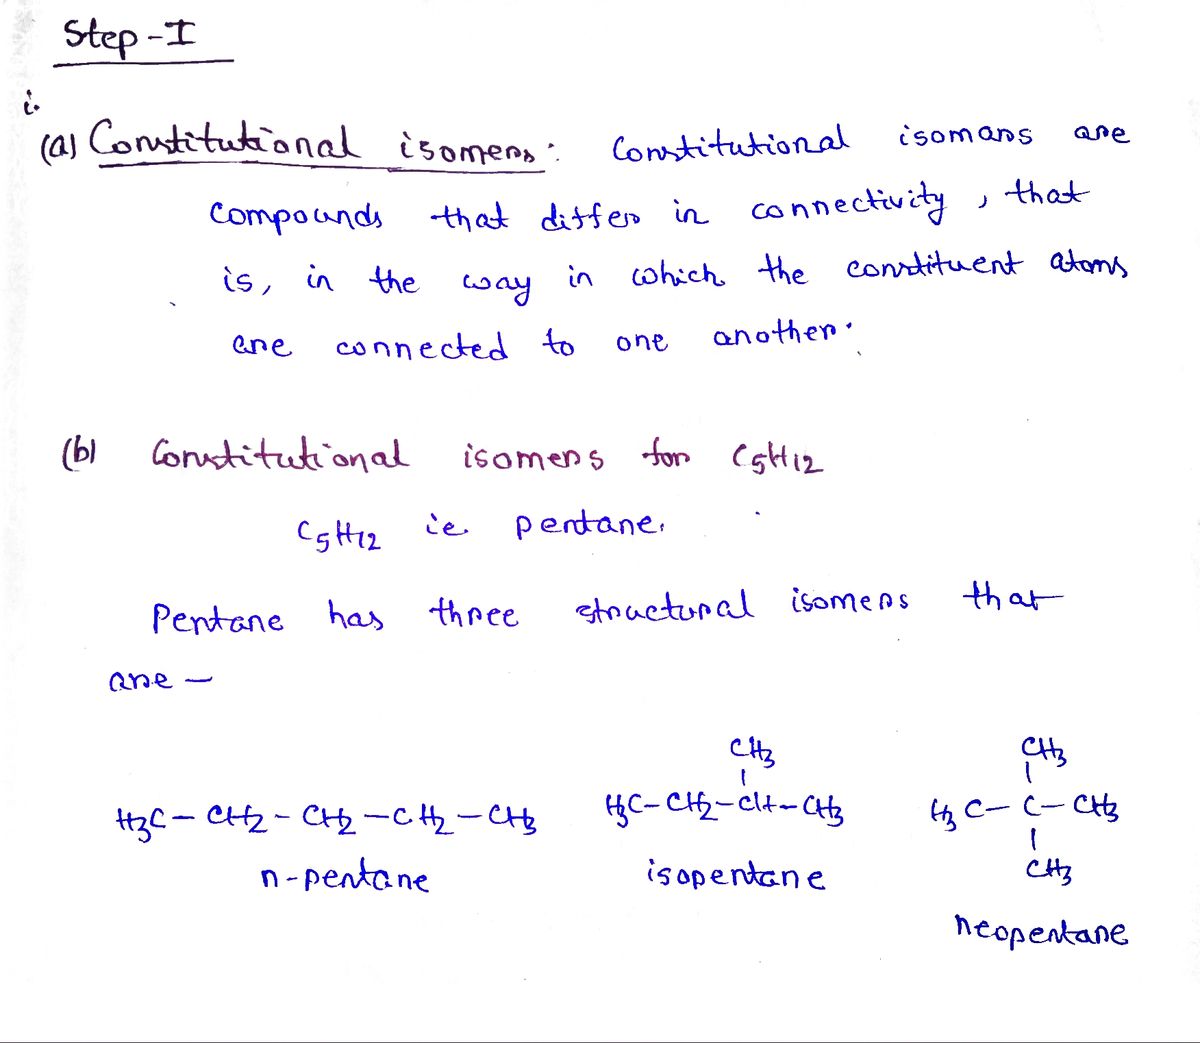 Step-I
i.
(a) Constitutional isomers: Constitutional isomars are
compounds that differ in connectivity, that
is, in the way in which the constituent atoms
are connected to one another.
(b) Constitutional isomers for C5H12
C5H12 ie pentane.
Pentane has three structural isomers that
are —
CH3 CH3
H3C – CH2 – CH2 – CH2 – CH3 H3C – CH2 – CH – CH3 H3C – C – CH3
CH3
n-pentane isopentane
neopentane